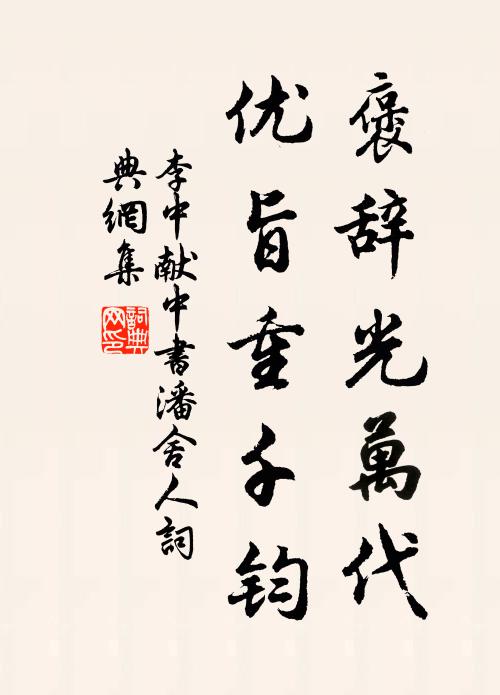 褒辞光萬代
优旨重千钧
李中献中書潘舍人詞
典網集
詞典网印